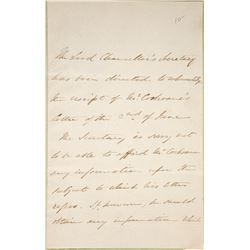 The Lord Chancellor's Secretary
has been directed to acknowledge
the receipt of Mr Cochrane's
letter of the 2nd of June
The Secretary is sorry not
to be able to afford Mr Cochrane
any information upon the
subject to which his letter
refers. If however he should
obtain any information which